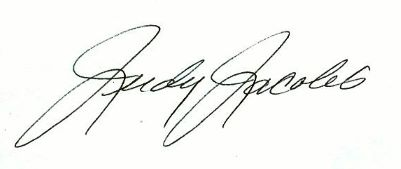 Judy Jacobs